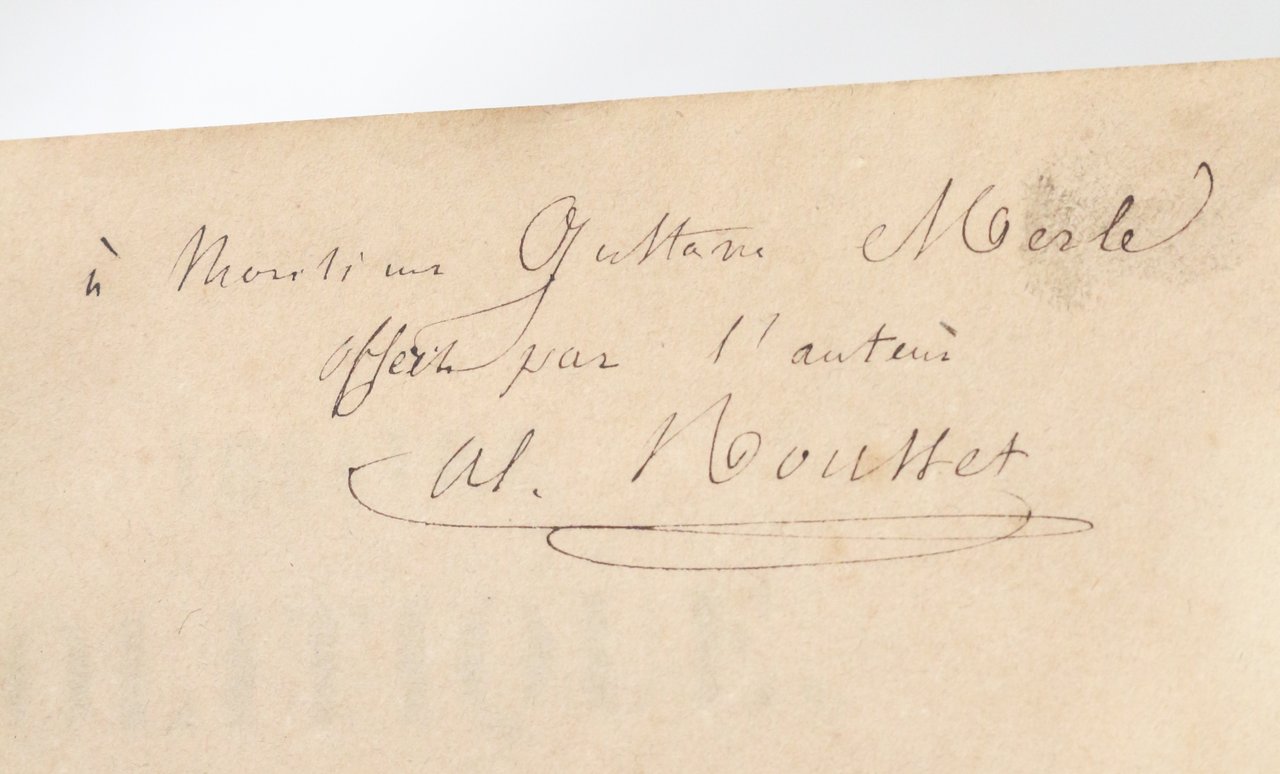 à Monsieur Gustave Merle
offert par l'auteur
Al. Rousset